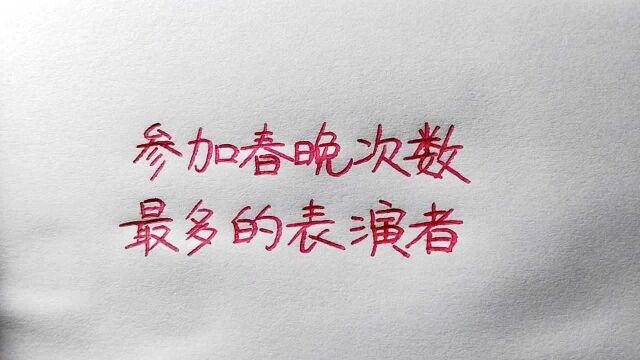 参加春晚次数
最多的表演者